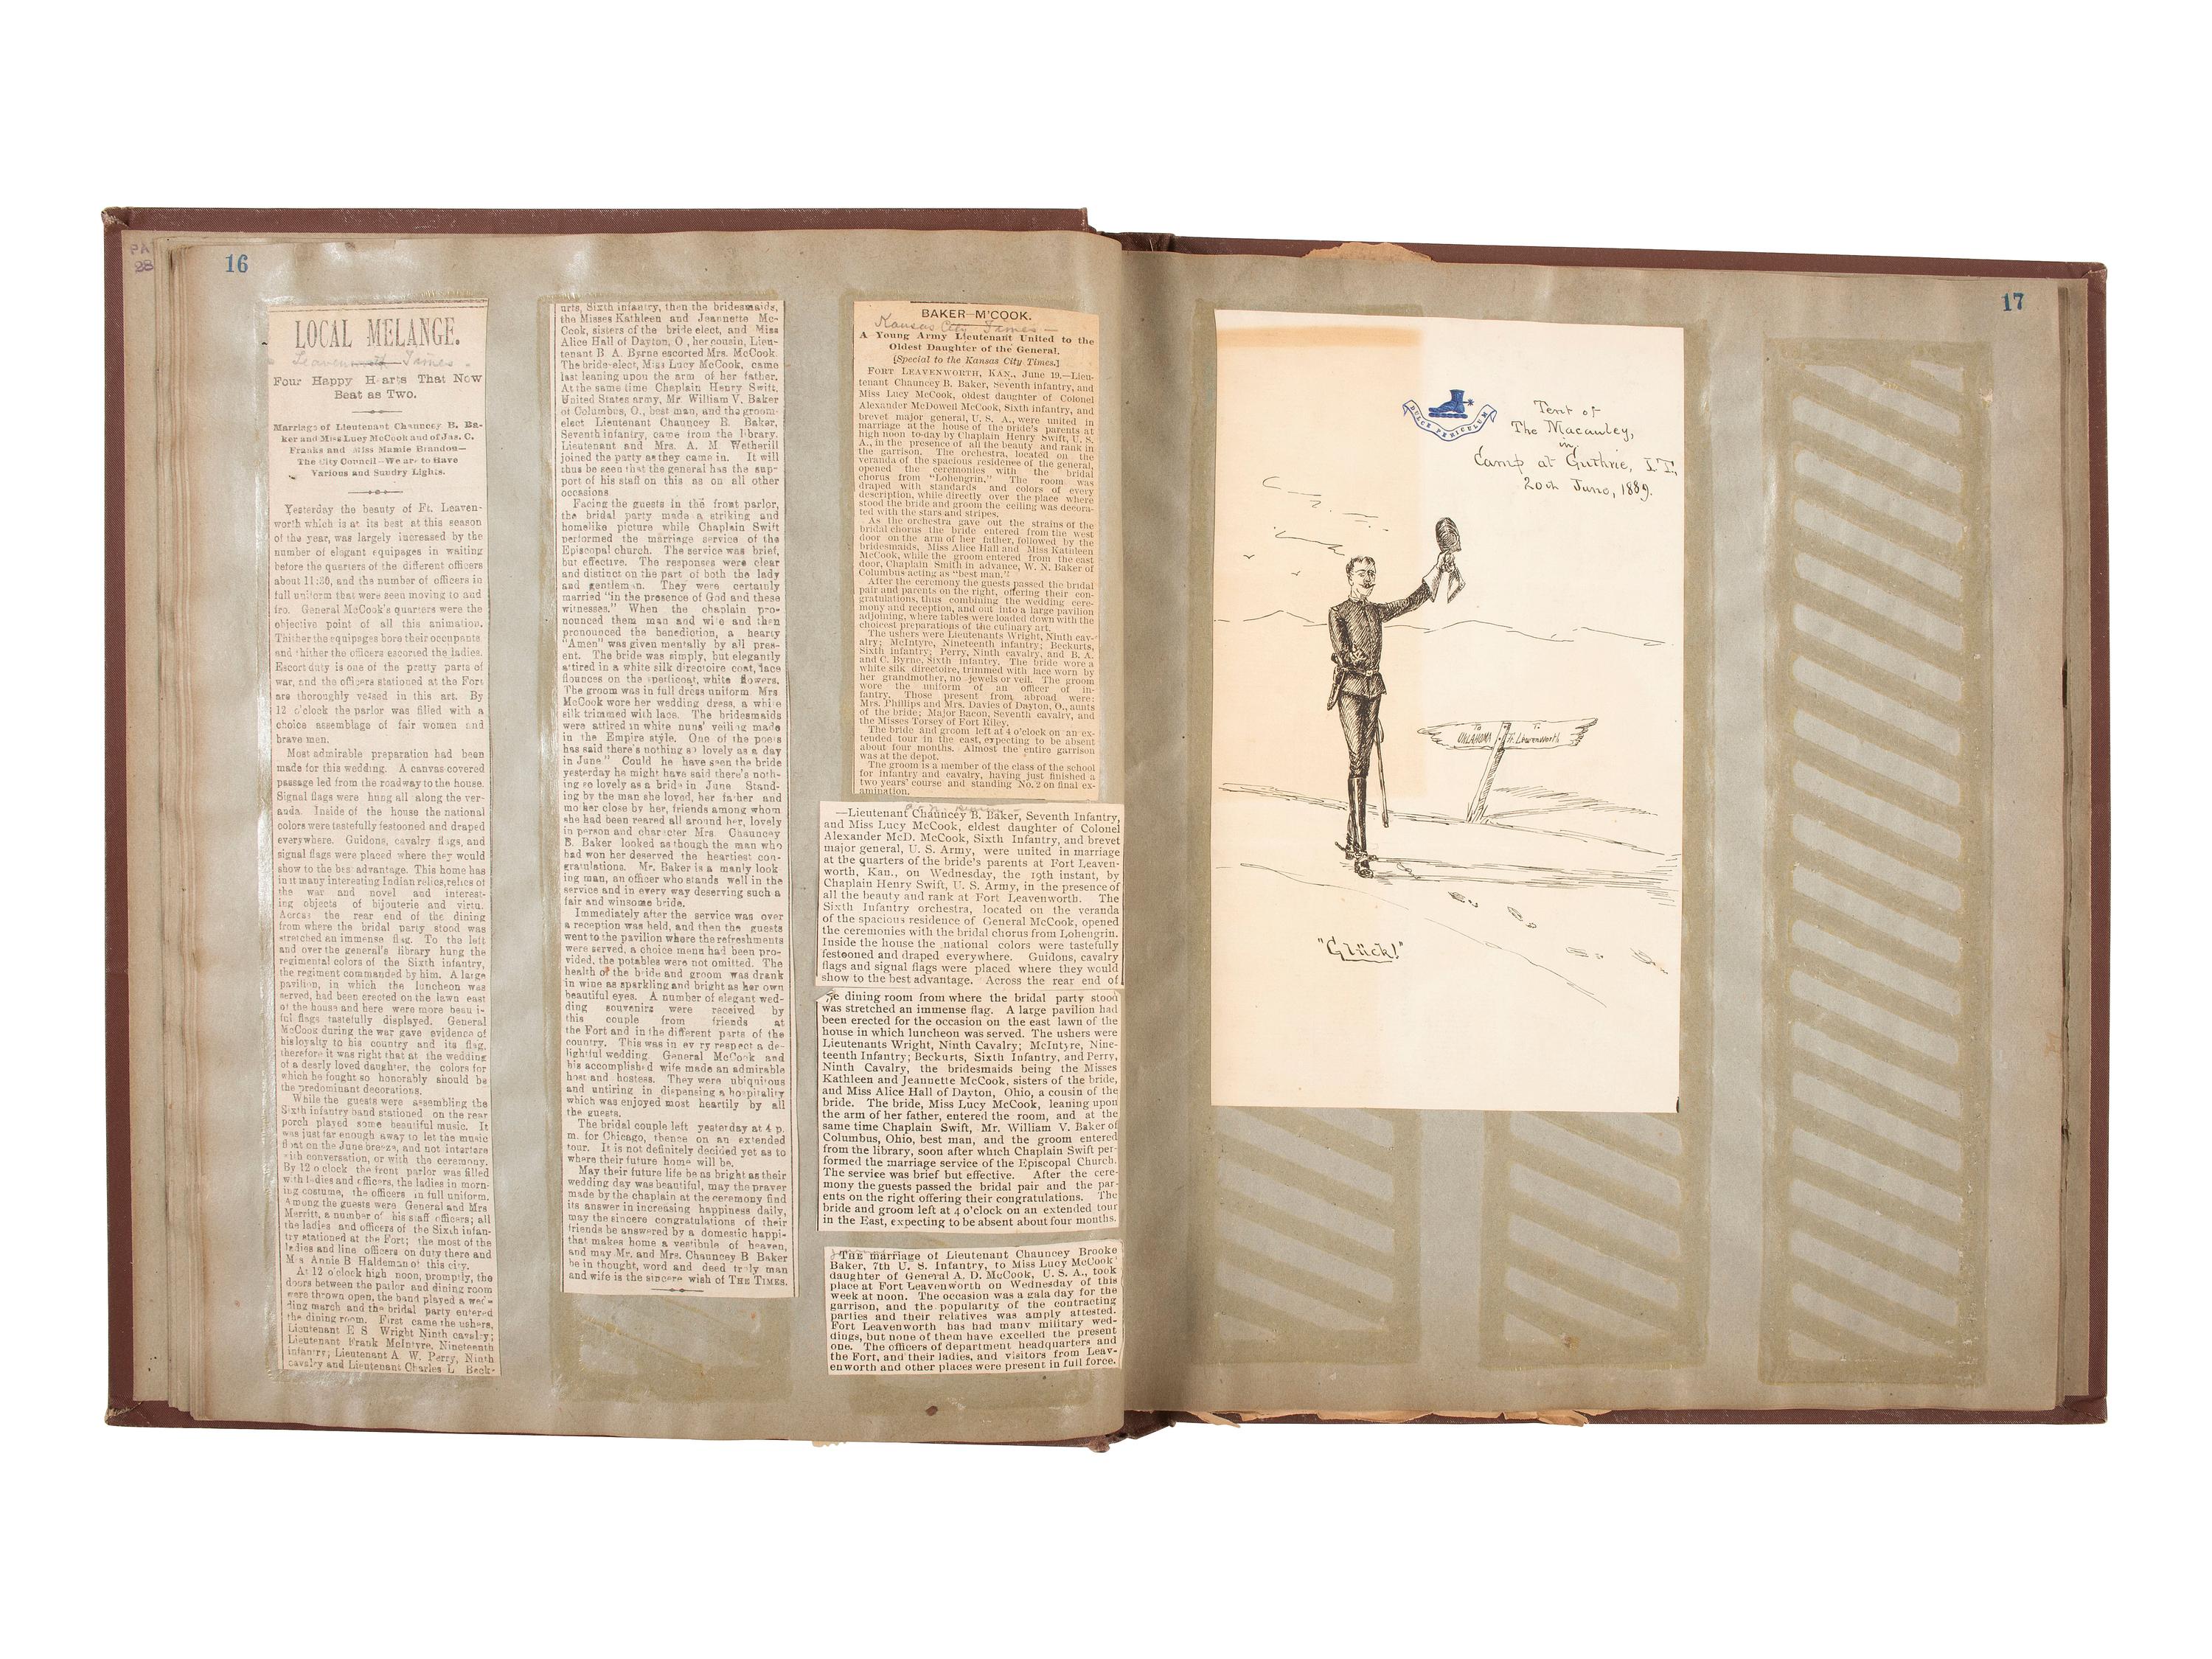 PA
28
16
LOCAL MELANGE.
Leavenworth Times
Four Happy H arts That Now
Beat as Two.
Marriage of Lieutenant Chauncey B. Ba-
ker and Miss Lucy McCook and of Jas. C.
Franks and Miss Mamie Brandon—
The City Council—We are to Have
Various and Sundry Lights.
Yesterday the beauty of Ft. Leaven-
worth which is at its best at this season
of the year, was largely increased by the
number of elegant equipages in waiting
before the quarters of the different officers
about 11:30, and the number of officers in
full uniform that were seen moving to and
fro. General McCook's quarters were the
objective point of all this animation.
Thither the equipages bore their occupants
and thither the officers escorted the ladies.
Escort duty is one of the pretty parts of
war, and the officers stationed at the Fort
are thoroughly versed in this art. By
12 o'clock the parlor was filled with a
choice assemblage of fair women and
brave men.
Most admirable preparation had been
made for this wedding. A canvas-covered
passage led from the roadway to the house.
Signal flags were hung all along the ver-
anda. Inside of the house the national
colors were tastefully festooned and draped
everywhere. Guidons, cavalry flags, and
signal flags were placed where they would
show to the best advantage. This home has
in it many interesting Indian relics, relics of
the war and novel and interest-
ing objects of bijouterie and virtu.
Across the rear end of the dining
from where the bridal party stood was
stretched an immense flag. To the left
and over the general's library hung the
regimental colors of the Sixth infantry,
the regiment commanded by him. A large
pavilion, in which the luncheon was
served, had been erected on the lawn east
of the house and here were more beau i-
ful flags tastefully displayed. General
McCook during the war gave evidence of
his loyalty to his country and its flag,
therefore it was right that at the wedding
of a dearly loved daughter, the colors for
which he fought so honorably should be
the predominant decorations.
While the guests were assembling the
Sixth infantry band stationed on the rear
porch played some beautiful music. It
was just far enough away to let the music
float on the June breeze, and not interfere
with conversation, or with the ceremony.
By 12 o clock the front parlor was filled
with ladies and officers, the ladies in morn-
ing costume, the officers in full uniform.
Among the guests were General and Mrs
Merritt, a number of his staff officers; all
the ladies and officers of the Sixth infan-
try stationed at the Fort; the most of the
ladies and line officers on duty there and
M s Annie B Haldeman of this city.
At 12 o'clock high noon, promptly, the
doors between the parlor and dining room
were thrown open, the band played a wed-
ding march and the bridal party entered
the dining room. First came the ushers,
Lieutenant E S Wright Ninth cavalry;
Lieutenant Frank McIntyre, Nineteenth
infantry; Lieutenant A. W. Perry, Ninth
cavalry and Lieutenant Charles L Beck-
urts, Sixth infantry, then the bridesmaids,
the Misses Kathleen and Jeannette Mc-
Cook, sisters of the bride elect, and Miss
Alice Hall of Dayton, O, her cousin, Lieu-
tenant B A. Byrne escorted Mrs. McCook.
The bride-elect, Miss Lucy McCook, came
last leaning upon the arm of her father.
At the same time Chaplain Henry Swift,
United States army, Mr William V. Baker
of Columbus, O., best man, and the groom-
elect Lieutenant Chauncey B. Baker,
Seventh infantry, came from the library.
Lieutenant and Mrs. A. M Wetherill
joined the party as they came in. It will
thus be seen that the general has the sup-
port of his staff on this as on all other
occasions
Facing the guests in the front parlor,
the bridal party made a striking and
homelike picture while Chaplain Swift
performed the marriage service of the
Episcopal church. The service was brief,
but effective. The responses were clear
and distinct on the part of both the lady
and gentleman. They were certainly
married "in the presence of God and these
witnesses." When the chaplain pro-
nounced them man and wife and then
pronounced the benediction, a hearty
"Amen" was given mentally by all pres-
ent. The bride was simply, but elegantly
attired in a white silk directoire coat, lace
flounces on the petticoat, white flowers.
The groom was in full dress uniform Mrs
McCook wore her wedding dress, a white
silk trimmed with lace. The bridesmaids
were attired in white nuns' veiling made
in the Empire style. One of the poets
has said there's nothing so lovely as a day
in June." Could he have seen the bride
yesterday he might have said there's noth-
ing so lovely as a bride in June Stand-
ing by the man she loved, her father and
mother close by her, friends among whom
she had been reared all around her, lovely
in person and character Mrs. Chauncey
B. Baker looked as though the man who
had won her deserved the heartiest con-
gratulations. Mr. Baker is a manly look
ing man, an officer who stands well in the
service and in every way deserving such a
fair and winsome bride.
Immediately after the service was over
a reception was held, and then the guests
went to the pavilion where the refreshments
were served, a choice menu had been pro-
vided, the potables were not omitted. The
health of the bride and groom was drank
in wine as sparkling and bright as her own
beautiful eyes. A number of elegant wed-
ding souvenirs were received by
this couple from friends at
the Fort and in the different parts of the
country. This was in ev ry respect a de-
lightful wedding General McCook and
his accomplished wife made an admirable
host and hostess. They were ubiquitous
and untiring in dispensing a hospitality
which was enjoyed most heartily by all
the guests.
The bridal couple left yesterday at 4 p.
m. for Chicago, thence on an extended
tour. It is not definitely decided yet as to
where their future home will be.
May their future life be as bright as their
wedding day was beautiful, may the prayer
made by the chaplain at the ceremony find
its answer in increasing happiness daily,
may the sincere congratulations of their
friends be answered by a domestic happi-
that makes home a vestibule of heaven,
and may Mr. and Mrs. Chauncey B Baker
be in thought, word and deed truly man
and wife is the sincere wish of THE TIMES.
BAKER—M'COOK.
Kansas City Times—
A Young Army Lieutenant United to the
Oldest Daughter of the General.
[Special to the Kansas City Times.]
FORT LEAVENWORTH, KAN., June 19.—Lieu-
tenant Chauncey B. Baker, Seventh infantry, and
Miss Lucy McCook, oldest daughter of Colonel
Alexander McDowell McCook, Sixth infantry, and
brevet major general, U. S. A., were united in
marriage at the house of the bride's parents at
high noon to-day by Chaplain Henry Swift, U. S.
A., in the presence of all the beauty and rank in
the garrison. The orchestra, located on the
veranda of the spacious residence of the general,
opened the ceremonies with the bridal
chorus from "Lohengrin." The room was
draped with standards and colors of every
description, while directly over the place where
stood the bride and groom the ceiling was decora-
ted with the stars and stripes.
As the orchestra gave out the strains of the
bridal chorus the bride entered from the west
door on the arm of her father, followed by the
bridesmaids, Miss Alice Hall and Miss Kathleen
McCook, while the groom entered from the east
door, Chaplain Smith in advance, W. N. Baker of
Columbus acting as "best man."
After the ceremony the guests passed the bridal
pair and parents on the right, offering their con-
gratulations, thus combining the wedding cere-
mony and reception, and out into a large pavilion
adjoining, where tables were loaded down with the
choicest preparations of the culinary art.
The ushers were Lieutenants Wright, Ninth cav-
alry; McIntyre, Nineteenth infantry; Beckurts,
Sixth infantry; Perry, Ninth cavalry, and B. A.
and C. Byrne, Sixth infantry. The bride wore a
white silk directoire, trimmed with lace worn by
her grandmother, no jewels or veil. The groom
wore the uniform of an officer of in-
fantry. Those present from abroad were:
Mrs. Phillips and Mrs. Davies of Dayton, O., aunts
of the bride; Major Bacon, Seventh cavalry, and
the Misses Torsey of Fort Riley.
The bride and groom left at 4 o'clock on an ex-
tended tour in the east, expecting to be absent
about four months. Almost the entire garrison
was at the depot.
The groom is a member of the class of the school
for infantry and cavalry, having just finished a
two years' course and standing No. 2 on final ex-
amination.
—Lieutenant Chauncey B. Baker, Seventh Infantry,
and Miss Lucy McCook, eldest daughter of Colonel
Alexander McD. McCook, Sixth Infantry, and brevet
major general, U. S. Army, were united in marriage
at the quarters of the bride's parents at Fort Leaven-
worth, Kan., on Wednesday, the 19th instant, by
Chaplain Henry Swift, U. S. Army, in the presence of
all the beauty and rank at Fort Leavenworth. The
Sixth Infantry orchestra, located on the veranda
of the spacious residence of General McCook, opened
the ceremonies with the bridal chorus from Lohengrin.
Inside the house the national colors were tastefully
festooned and draped everywhere. Guidons, cavalry
flags and signal flags were placed where they would
show to the best advantage. Across the rear end of
he dining room from where the bridal party stood
was stretched an immense flag. A large pavilion had
been erected for the occasion on the east lawn of the
house in which luncheon was served. The ushers were
Lieutenants Wright, Ninth Cavalry; McIntyre, Nine-
teenth Infantry; Beckurts, Sixth Infantry, and Perry,
Ninth Cavalry, the bridesmaids being the Misses
Kathleen and Jeannette McCook, sisters of the bride,
and Miss Alice Hall of Dayton, Ohio, a cousin of the
bride. The bride, Miss Lucy McCook, leaning upon
the arm of her father, entered the room, and at the
same time Chaplain Swift, Mr. William V. Baker of
Columbus, Ohio, best man, and the groom entered
from the library, soon after which Chaplain Swift per-
formed the marriage service of the Episcopal Church.
The service was brief but effective. After the cere-
mony the guests passed the bridal pair and the par-
ents on the right offering their congratulations. The
bride and groom left at 4 o'clock on an extended tour
in the East, expecting to be absent about four months.
THE marriage of Lieutenant Chauncey Brooke
Baker, 7th U. S. Infantry, to Miss Lucy McCook
daughter of General A. D. McCook, U. S. A., took
place at Fort Leavenworth on Wednesday of this
week at noon. The occasion was a gala day for the
garrison, and the popularity of the contracting
parties and their relatives was amply attested.
Fort Leavenworth has had many military wed-
dings, but none of them have excelled the present
one. The officers of department headquarters and
the Fort, and their ladies, and visitors from Leav-
enworth and other places were present in full force.
17
DULCE PERICULUM
Tent of
The Macauley,
in
Camp at Guthrie, I.T.,
20th June, 1889.
To OKLAHOMA
To Ft. Leavenworth
"Glück!"